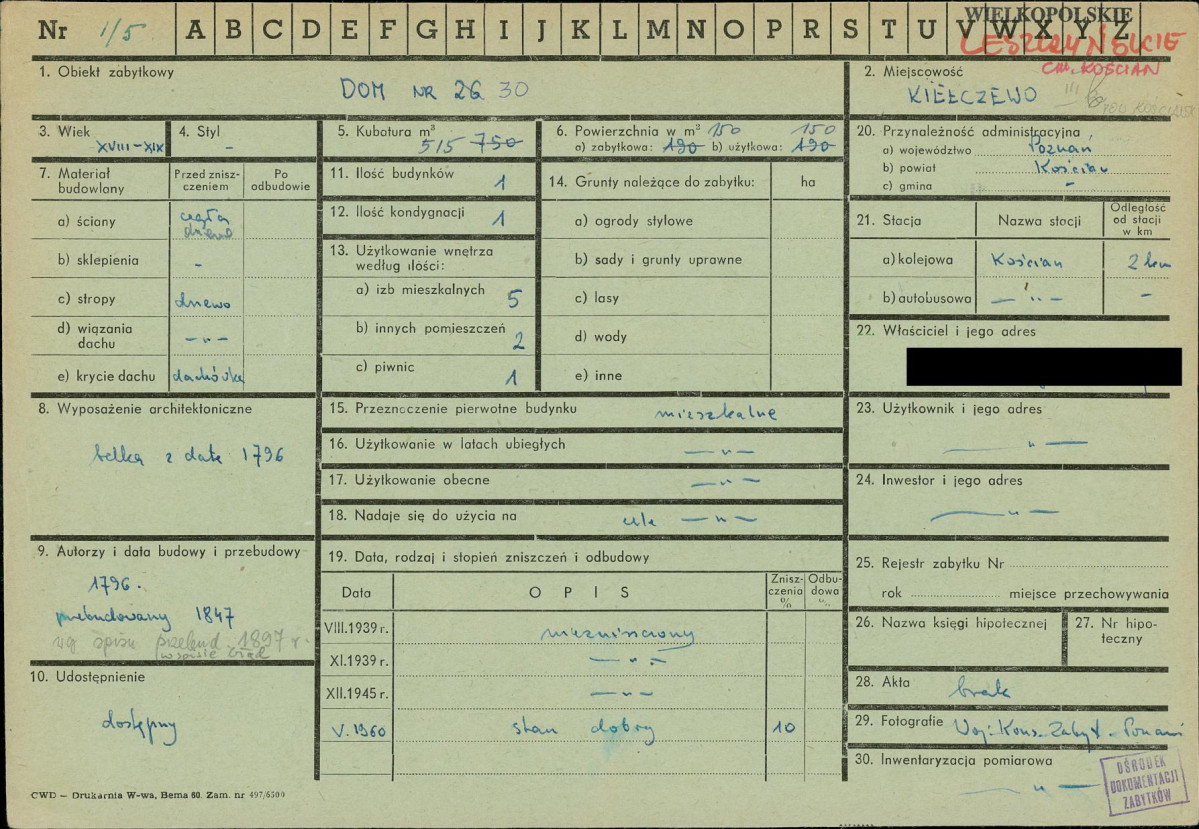 Nr 1/5 A B C D E F G H I J K L M N O P R S T U V W X Y Z
WIELKOPOLSKIE
LESZCZYŃSKIE
Gm. KOŚCIAN
1. Obiekt zabytkowy
DOM NR 26 30
2. Miejscowość
KIEŁCZEWO
3. Wiek
XVIII-XIX
4. Styl
-
5. Kubatura m³
515 750
6. Powierzchnia w m² 150 150
a) zabytkowa: 190 b) użytkowa: 190
20. Przynależność administracyjna
a) województwo Poznań
b) powiat Kościan
c) gmina -
7. Materiał budowlany
Przed zniszczeniem
Po odbudowie
a) ściany cegła drzewo
b) sklepienia -
c) stropy drzewo
d) wiązania dachu -"-
e) krycie dachu dachówka
11. Ilość budynków 1
12. Ilość kondygnacji 1
13. Użytkowanie wnętrza według ilości:
a) izb mieszkalnych 5
b) innych pomieszczeń 2
c) piwnic 1
14. Grunty należące do zabytku: ha
a) ogrody stylowe
b) sady i grunty uprawne
c) lasy
d) wody
e) inne
21. Stacja
Nazwa stacji
Odległość od stacji w km
a) kolejowa Kościan 2 km
b) autobusowa -"- -
22. Właściciel i jego adres
8. Wyposażenie architektoniczne
belka z datą 1796
15. Przeznaczenie pierwotne budynku mieszkalne
16. Użytkowanie w latach ubiegłych -"-
17. Użytkowanie obecne -"-
18. Nadaje się do użycia na cele -"-
23. Użytkownik i jego adres
-"-
24. Inwestor i jego adres
-"-
9. Autorzy i data budowy i przebudowy
1796.
przebudowany 1847
wg opisu przebud. 1897 r.
19. Data, rodzaj i stopień zniszczeń i odbudowy
Data
O P I S
Zniszczenia %
Odbudowa %
VIII.1939 r. niezniszczony
XI.1939 r. -"-
XII.1945 r. -"-
V. 1960 stan dobry 10
25. Rejestr zabytku Nr
rok miejsce przechowywania
26. Nazwa księgi hipotecznej
27. Nr hipoteczny
10. Udostępnienie
dostępny
28. Akta brak
29. Fotografie Woj. Kons. Zabyt. - Poznań
30. Inwentaryzacja pomiarowa
-"-
OŚRODEK
DOKUMENTACJI
ZABYTKÓW
CWD – Drukarnia W-wa, Bema 60. Zam. nr 497/6500